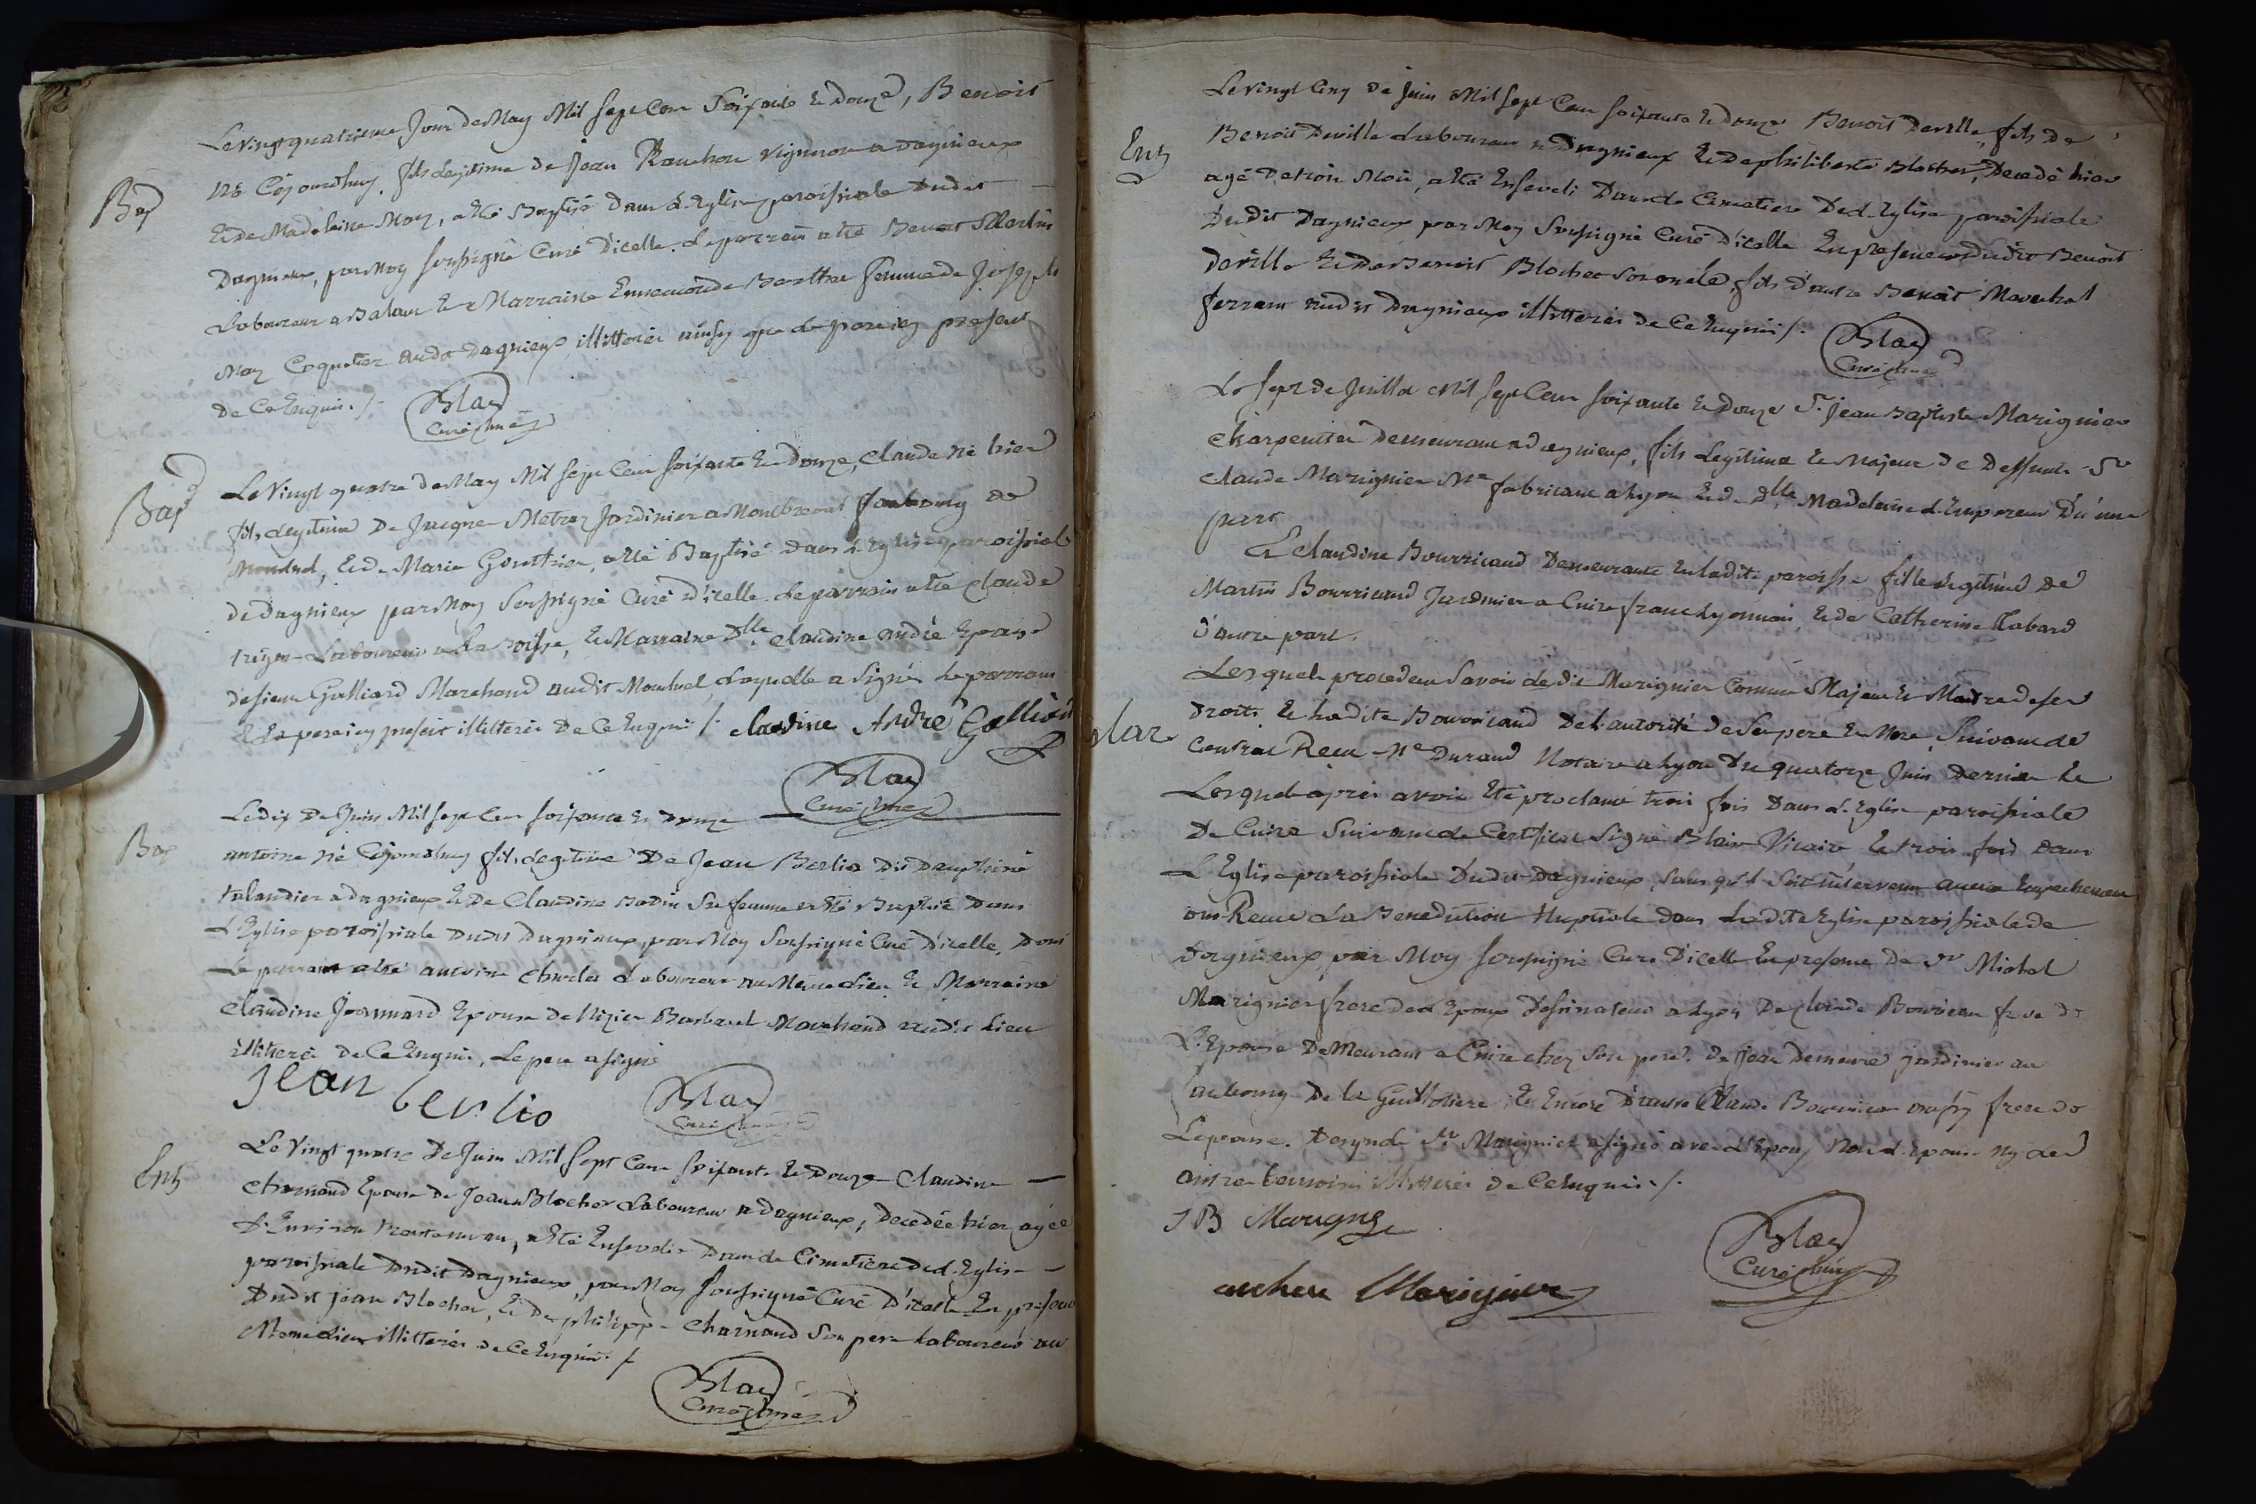 Le vingt quatrieme Jour de May Mil sept Cent Soixante Et Douze, Benoit
né Cejourdhuy, fils Legitime de Jean Rauchon vigneron a dagnieux
Et de Madelaine Moy, a Eté Baptisé dans L'Eglise paroissiale Dudit
Dagnieux, par Moy soussigné Curé D'icelle. Le parrain a Eté Benoit Martin
Laboureur a Balan Et Marraine Ennemonde Berthe femme de Joseph
May Coquetier audt dagnieux illitterés ainsy que le pere icy present
De Ce Enquis ./.
Blay
Curé
Bap
Le Vingt quatre de May Mil sept Cent soixante Et Douze, Claude né hier
fils Legitime De Jacque Metroz Jardinier a Montbrevet faubourg de
Montluel, Et de Marie Gonthier, a Eté Baptisé dans L'Eglise paroissiale
de Dagnieux par Moy Soussigné Curé D'icelle. Le parrain a Eté Claude
Laboureur a La Boisse, Et Marraine Dlle Claudine André Epouse
de sieur Galliard Marchand audit Montluel, Laquelle a Signé, Le parrain
Et Le pere icy present illitterés De Ce Enquis ./. claudine André Galliard
Bap
Blay
Curé
Le dix De Juin Mil sept Cent soixante Et Douze
antoine né Cejourdhuy fils Legitime De Jean Berlio dit Dauphiné
talandier a dagnieux Et De Claudine Bodin Sa femme a Eté Baptisé Dans
L'Eglise paroissiale Dudit Dagnieux, par Moy Soussigné Curé D'icelle, Dont
Le parrain a Eté antoine Charles Laboureur au Meme Lieu Et Marraine
Claudine Joannard Epouse de Nizier Barbaret Marchand audit Lieu
illitterés De Ce Enquis, Le pere a signé
Bap
jean berlio
Blay
Curé
Le Vingt quatre De Juin Mil sept Cent soixante Et Douze Claudine
Charnand Epouse de Jean Blocher Laboureur a Dagnieux, Decedée hier agée
D'Environ trente un an, a Eté Ensevelie Dans Le Cimetiere Ded. Eglise
paroissiale Dudit Dagnieux, par Moy soussigné Curé D'icelle En presence
Dudit jean Blocher, Et De philippe Charnand Son pere Laboureur au
Meme Lieu illitterés de Ce Enquis ./.
Ens
Blay
Curé
Le vingt Cinq De Juin Mil sept Cent soixante Et Douze Benoit Deville fils De
Benoit Deville Laboureur a Dagnieux Et De philiberte Blocher, Decedé hier
agé De trois Mois, a Eté Enseveli Dans Le Cimetiere Ded. Eglise paroissiale
Dudit Dagnieux par Moy Soussigné Curé D'icelle En presence Dudit Benoit
deville Et De Benoit Blocher Son oncle fils D'autre Benoit Marechal
ferrant audit Dagnieux illitterés de Ce Enquis ./.
Ens
Blay
Curé
Le sept de Juillet Mil sept Cent soixante Et Douze Sr. Jean Baptiste Marignier
Charpentier Demeurant a dagnieux, fils Legitime Et Majeur De Deffunt Sr
Claude Marignier Me fabricant a Lyon Et De Dlle Madelaine L'Empereur D'une
part
Et Claudine Bourricaud Demeurante En ladite paroisse fille Legitime De
Martin Bourricaud Jardinier a Cuire franc Lyonnois, Et de Catherine Rabard
D'autre part.
Lesquels procedent Savoir Le dit Marignier Comme Majeur Et Maitre de ses
Droits, Et Ladite Bourricaud De L'autorité De Ses pere Et Mere, Suivant Le
Contrat Recu Me Durand Notaire a Lyon Du quatorze Juin Dernier Et
Lesquels apres avoir Eté proclamé trois fois Dans L'Eglise paroissiale
De Cuire Suivant Le Certificat Signé Blain Vicaire, Et trois fois Dans
L'Eglise paroissiale Dudit dagnieux, sans qu'il Soit intervenu aucun Empechement
ont Recu La Benediction Nuptiale dans Ladite Eglise paroissiale de
dagnieux par Moy soussigné Curé D'icelle En presence De Sr Michel
Marignier frere De L'Epoux Dessinateur a Lyon De Claude Bourricau frere De
L'Epouse Demeurant a Cuire chez Son pere. De Jean Demeure jardinier au
faubourg De la Guillotiere Et Encore D'autre Claude Bourricau aussy frere De
Lepouse. Desquels Sr Marignier a signé avec L'Epoux Non L'Epouse Ny Les
autres temoins illitterés de Ce Enquis ./.
Mar
J B Marigny
Marignier
Blay
Curé